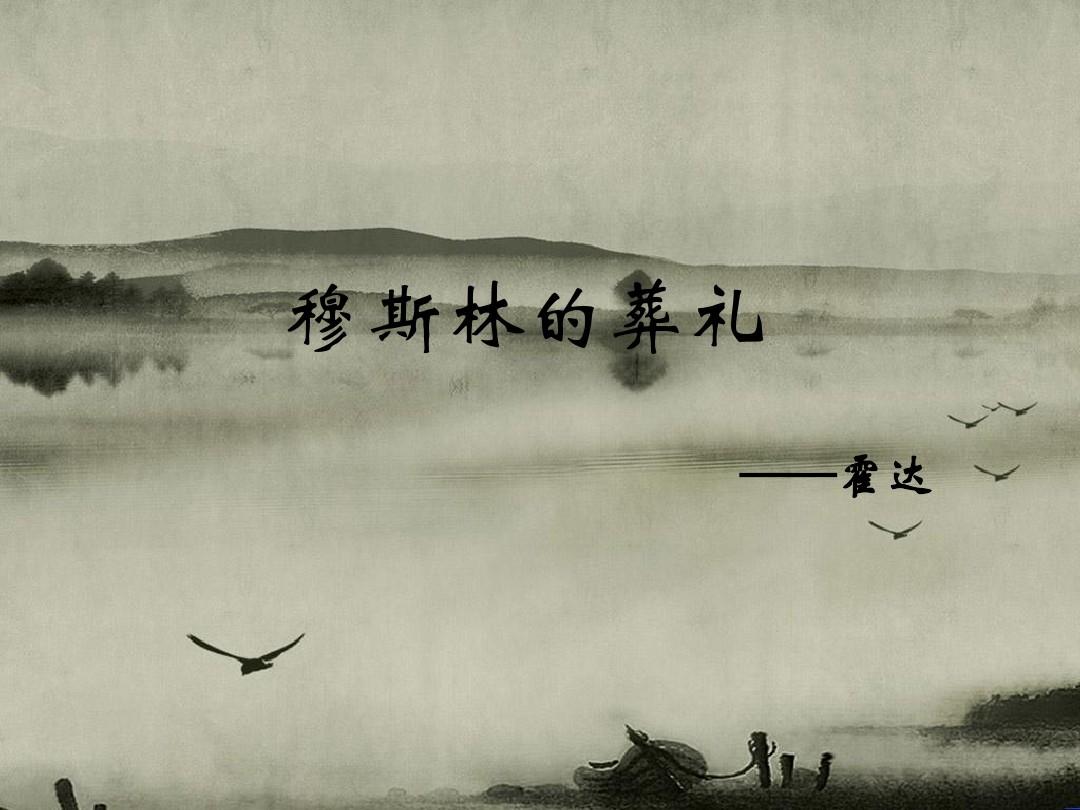 穆斯林的葬礼
——霍达